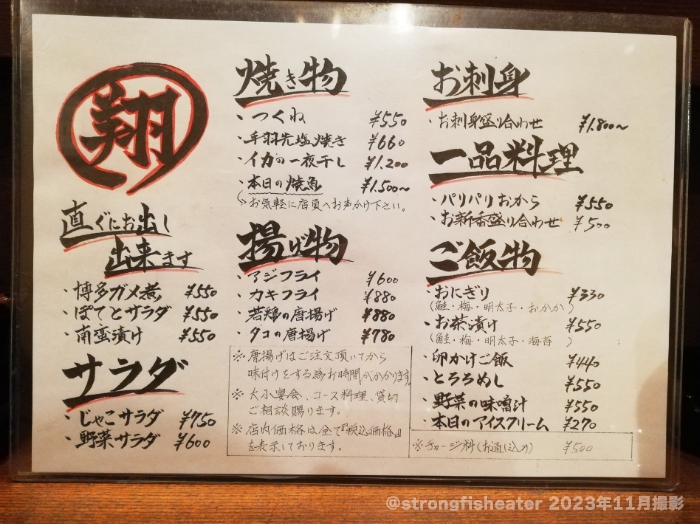 翔
直ぐにお出し
出来ます
・博多ガメ煮 ¥550
・ぽてとサラダ ¥550
・南蛮漬け ¥550
サラダ
・じゃこサラダ ¥750
・野菜サラダ ¥600
焼き物
・つくね ¥550
・手羽先塩焼き ¥660
・イカの一夜干し ¥1.200
・本日の焼魚 ¥1.500~
お気軽に店員へお声かけ下さい。
揚げ物
・アジフライ ¥600
・カキフライ ¥880
・若鶏の唐揚げ ¥880
・タコの唐揚げ ¥780
※ 唐揚げはご注文頂いてから
味付けをする為お時間がかかります。
※ 大小宴会、コース料理、貸切
ご相談賜ります。
※ 店内価格は全て『税込価格』
を表示しております。
お刺身
・お刺身盛り合わせ ¥1.800~
一品料理
・パリパリおから ¥550
・お新香盛り合わせ ¥500
ご飯物
・おにぎり ¥330
(鮭・梅・明太子・おかか)
・お茶漬け ¥550
(鮭・梅・明太子・海苔)
・卵かけご飯 ¥440
・とろろめし ¥550
・野菜の味噌汁 ¥550
・本日のアイスクリーム ¥270
※チャージ料(お通し込み) ¥500
@strongfisheater 2023年11月撮影